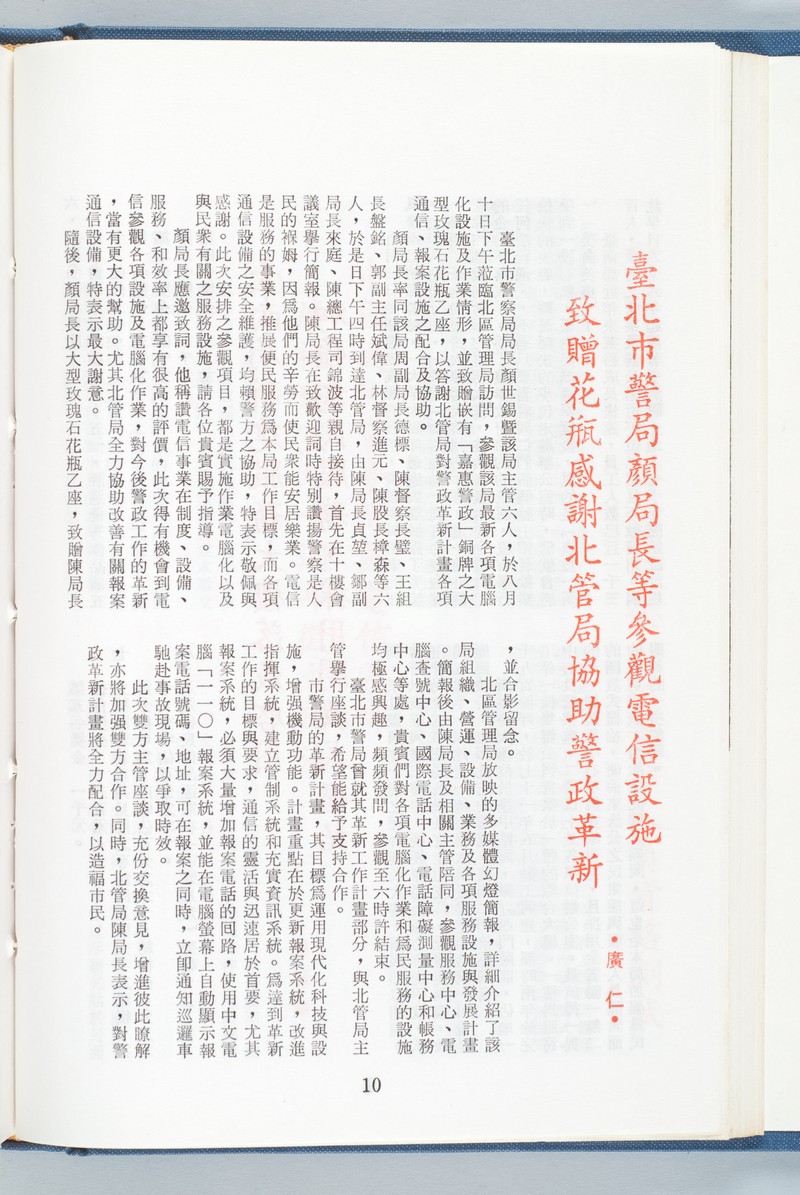 臺北市警局顏局長等參觀電信設施
致贈花瓶感謝北管局協助警政革新
•廣 仁•
臺北市警察局局長顏世錫暨該局主管六人，於八月
十日下午蒞臨北區管理局訪問，參觀該局最新各項電腦
化設施及作業情形，並致贈嵌有「嘉惠警政」銅牌之大
型玫瑰石花瓶乙座，以答謝北管局對警政革新計畫各項
通信、報案設施之配合及協助。
顏局長率同該局周副局長德標、陳督察長璧、王組
長盤銘、郭副主任斌偉、林督察進元、陳股長樟森等六
人，於是日下午四時到達北管局，由陳局長貞堃、鄒副
局長來庭、陳總工程司錦波等親自接待，首先在十樓會
議室舉行簡報。陳局長在致歡迎詞時特別讚揚警察是人
民的褓姆，因爲他們的辛勞而使民衆能安居樂業。電信
是服務的事業，推展便民服務爲本局工作目標，而各項
通信設備之安全維護，均賴警方之協助，特表示敬佩與
感謝。此次安排之參觀項目，都是實施作業電腦化以及
與民衆有關之服務設施，請各位貴賓賜予指導。
顏局長應邀致詞，他稱讚電信事業在制度、設備、
服務、和效率上都享有很高的評價，此次得有機會到電
信參觀各項設施及電腦化作業，對今後警政工作的革新
，當有更大的幫助。尤其北管局全力協助改善有關報案
通信設備，特表示最大謝意。
隨後，顏局長以大型玫瑰石花瓶乙座，致贈陳局長
，並合影留念。
北區管理局放映的多媒體幻燈簡報，詳細介紹了該
局組織、營運、設備、業務及各項服務設施與發展計畫
。簡報後由陳局長及相關主管陪同，參觀服務中心、電
腦查號中心、國際電話中心、電話障礙測量中心和帳務
中心等處，貴賓們對各項電腦化作業和爲民服務的設施
均極感興趣，頻頻發問，參觀至六時許結束。
臺北市警局曾就其革新工作計畫部分，與北管局主
管舉行座談，希望能給予支持合作。
市警局的革新計畫，其目標爲運用現代化科技與設
施，增强機動功能。計畫重點在於更新報案系統，改進
指揮系統，建立管制系統和充實資訊系統。爲達到革新
工作的目標與要求，通信的靈活與迅速居於首要，尤其
報案系統，必須大量增加報案電話的回路，使用中文電
腦「一一〇」報案系統，並能在電腦螢幕上自動顯示報
案電話號碼、地址，可在報案之同時，立卽通知巡邏車
馳赴事故現場，以爭取時效。
此次雙方主管座談，充份交換意見，增進彼此瞭解
，亦將加强雙方合作。同時，北管局陳局長表示，對警
政革新計畫將全力配合，以造福市民。
10